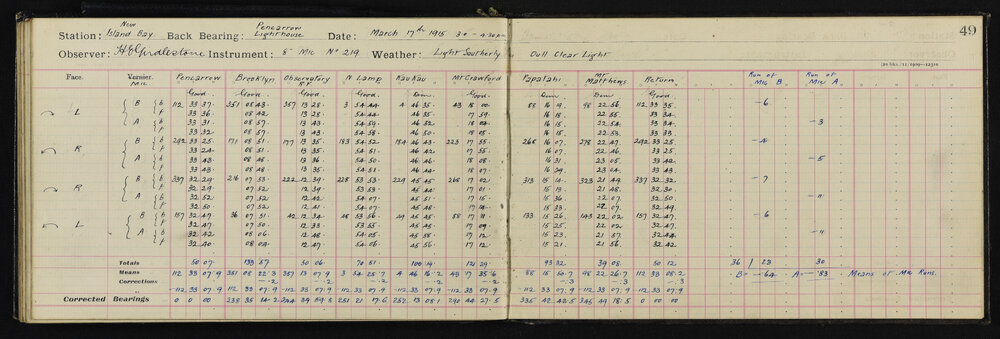 49
New Pencarrow
Station: Island Bay Back Bearing: Lighthouse Date: March 17th 1915 3.0 - 4.30pm
Observer: Instrument: 8" Mic No 219 Weather: Light Southerly Dull Clear Light
Face. Vernier. Mic Pencarrow Brooklyn Observatory N Lamp Kau Kau Mt Crawford Papatahi Mt Matthews Return Run of Mic B Run of Mic A
Good. Good. Good. Good. Dim. Good. Dim Dim Good.
L B b 112 33 37. 351 08 43. 357 13 28. 3 54 44 4 46 35. 43 18 00 88 16 19. 98 22 56. 112 33 35. -6
f 33 36. 08 42 13 28 54 44 46 35. 17 59. 16 18. 22 55. 33 34.
A b 33 31. 08 57. 13 43. 54 59. 46 52 18 04. 16 15. 22 54. 33 34. -3
f 33 32. 08 57. 13 43. 54 58. 46 50. 18 05. 16 15. 22 53. 33 33.
R B b 292 33 25. 171 08 51. 177 13 35. 183 54 52 184 46 43. 223 17 55. 268 16 07. 278 22 47. 292 33 25.
f 33 24. 08 51. 13 35. 54 51. 46 42. 17 55. 16 07. 22 46. 33 25.
A b 33 43. 08 48. 13 36. 54 50. 46 46. 18 08. 16 31. 23 05. 33 42. -5
f 33 43. 08 48. 13 35. 54 51. 46 44. 18 07. 16 29. 23 04. 33 43.
R B b 337 32 29. 216 07 53. 222 12 39. 228 53 53. 229 45 45. 268 17 02. 313 15 14. 323 21 49. 337 32 32. -7
f 32 29. 07 52. 12 39. 53 53. 45 44. 17 01. 15 13. 21 48. 32 30.
A b 32 52. 07 52. 12 42. 54 07. 45 51. 17 15. 15 36. 22 07. 32 50.
f 32 50. 07 52. 12 41. 54 07. 45 48. 17 14. 15 33. 22 07. 32 49.
L B b 157 32 47. 36 07 51. 42 12 34. 48 53 56. 49 45 45. 88 17 11. 133 15 26. 143 22 02. 157 32 47. -6
f 32 47. 07 50. 12 33. 53 55. 45 45. 17 09. 15 25. 22 02. 32 47.
A b 32 42. 08 06. 12 48. 54 05. 45 58. 17 12. 15 23. 21 57. 32 44.
f 32 40. 08 04. 12 47. 54 06. 45 56. 17 12 15 21. 21 56. 32 42
Totals 50 07. 133 57 50 06. 70 51. 100 19. 121 29. 93 32 39 08. 50 12 36 23 30
Means 112 33 07.9 351 08 22.3 357 13 07.9 3 54 25.7 4 46 16.2 43 17 35.6 88 15 50.7 98 22 26.7 112 33 08.2 B = -.64 A = -.83 Means of Mic Runs.
Corrections -.2 -.2 -.2 -.2 -.2 -.3 -.3 -.3
-112 33 07.9 -112 33 07.9 -112 33 07.9 -112 33 07.9 -112 33 07.9 -112 33 07.9 -112 33 07.9 -112 33 07.9 -112 33 07.9
Corrected Bearings 0 0 00 238 35 14.2 244 39 59.8 251 21 17.6 252 13 08.1 290 44 27.5 335 42 42.5 345 49 18.5 0 00 00